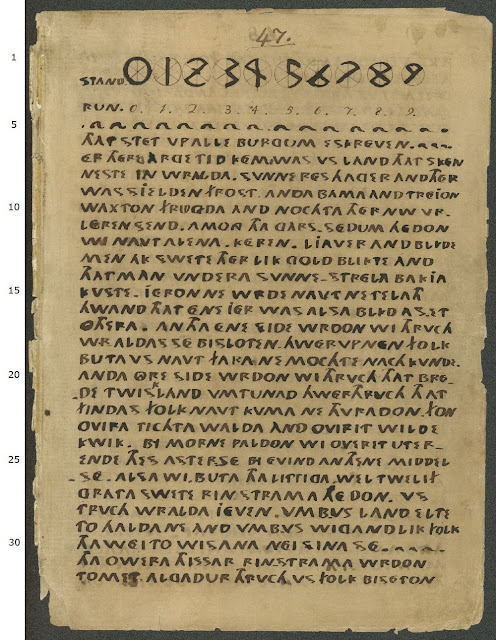 47.
STAND. 0 1 2 3 4 5 6 7 8 9
RUN. 0. 1. 2. 3. 4. 5. 6. 7. 8. 9.
THAT STET VPALLE BURGUM ESKREVEN.
ER THERE ARGE TID KEM. WAS VS LAND THAT SKEN
NESTE IN WRALDA. SUNNE RES HAGER AND THER
WAS SIELDEN FROST. ANDA BAMA AND TREION
WAXTON FRUGDA AND NOCHTA THER NW VR.
LEREN SEND. AMONG THA GARS. SEDUM HEDON
WI NAVT ALENA. KEREN. LIAVER AND BLIDE
MEN AK SWETE THER LIK GOLD BLIKTE AND
THAT MAN UNDERA SUNNE-STRELA BAKIA
KUSTE. IERON NE WRDE NAVT NE TELATH
HWAND THAT ENE IER WAS ALSA BLID AS ET
OTHERA. AN THA ENE SIDE WRDON WI THRUCH
WRALDAS SE BISLOTEN. HWERUP NEN FOLK
BUTA VS NAVT FARA NE MOCHTE NACH KUNDE.
ANDA ORE SIDE WRDON WI THRUCH THAT BRE-
DE TWISKLAND UMTUNAD HWERTHRUCH THAT
FINDAS FOLK NAVT KUMA NE THVRADON. FON
OVIRA TICHTA WALDA AND OVIR IT WILDE
KWIK. BI MORNE PALDON WI OVER IT UTER-
ENDE THES ASTERSE BI EVIND AN THENE MIDDEL
SE. ALSA WI. BUTA THA LITTIGA. WEL TWELIF
GRATA SWETE RINSTRAMA HEDON. VS
THRUCH WRALDA IEVEN. UMB VS LAND ELTE
TO HALDANE AND UMB VS WIGANDLIK FOLK
THA WEI TO WISANA NEI SINA SE.
THA OWERA THISSAR RINSTRAMA WRDON
TOMET ALGADUR THRUCH VS FOLK BISETON